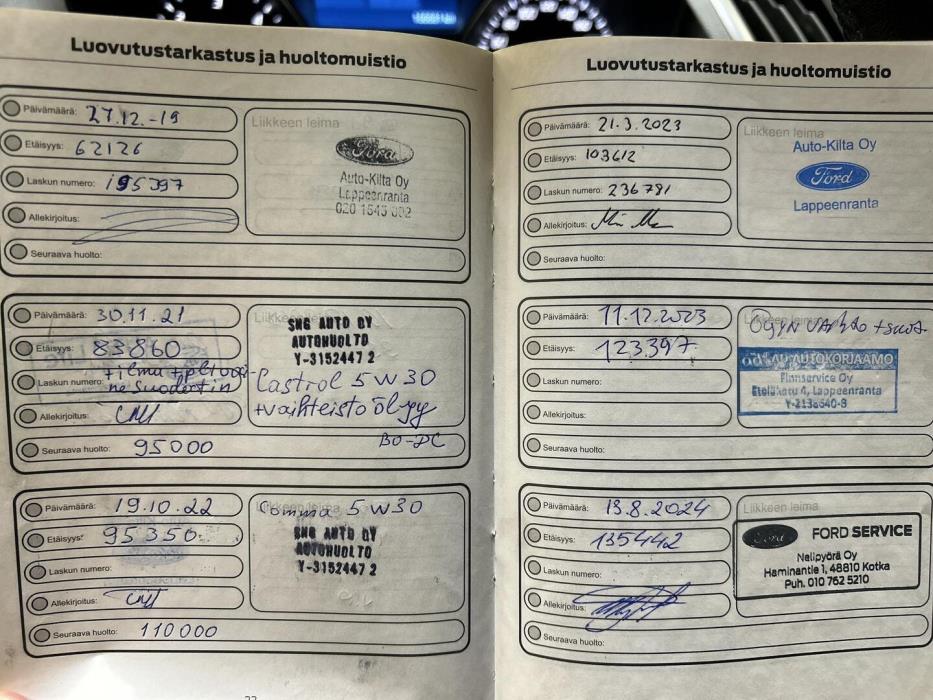 Luovutustarkastus ja huoltomuistio
Päivämäärä: 27.12.-19
Etäisyys: 62126
Laskun numero: 195397
Allekirjoitus:
Seuraava huolto:
Liikkeen leima
Ford
Auto-Kilta Oy
Lappeenranta
Päivämäärä: 30.11.21
Etäisyys: 83860
Laskun numero:
Allekirjoitus:
Seuraava huolto: 95000
SNG AUTO OY
AUTOHUOLTO
Y-3152447 2
Castrol 5W30
+vaihteisto öljy
BO-DC
Päivämäärä: 19.10.22
Etäisyys: 95350
Laskun numero:
Allekirjoitus:
Seuraava huolto: 110000
Comma 5W30
SNG AUTO OY
AUTOHUOLTO
Y-3152447 2
Luovutustarkastus ja huoltomuistio
Päivämäärä: 21.3.2023
Etäisyys: 103612
Laskun numero: 236781
Allekirjoitus:
Seuraava huolto:
Liikkeen leima
Auto-Kilta Oy
Ford
Lappeenranta
Päivämäärä: 11.12.2023
Etäisyys: 123.397
Laskun numero:
Allekirjoitus:
Seuraava huolto:
AUTOKORJAAMO
Finnservice Oy
Eteläkatu 4, Lappeenranta
Päivämäärä: 13.8.2024
Etäisyys: 135442
Laskun numero:
Allekirjoitus:
Seuraava huolto:
Liikkeen leima
Ford
FORD SERVICE
Nelipyörä Oy
Haminantie 1, 48810 Kotka
Puh. 010 762 5210